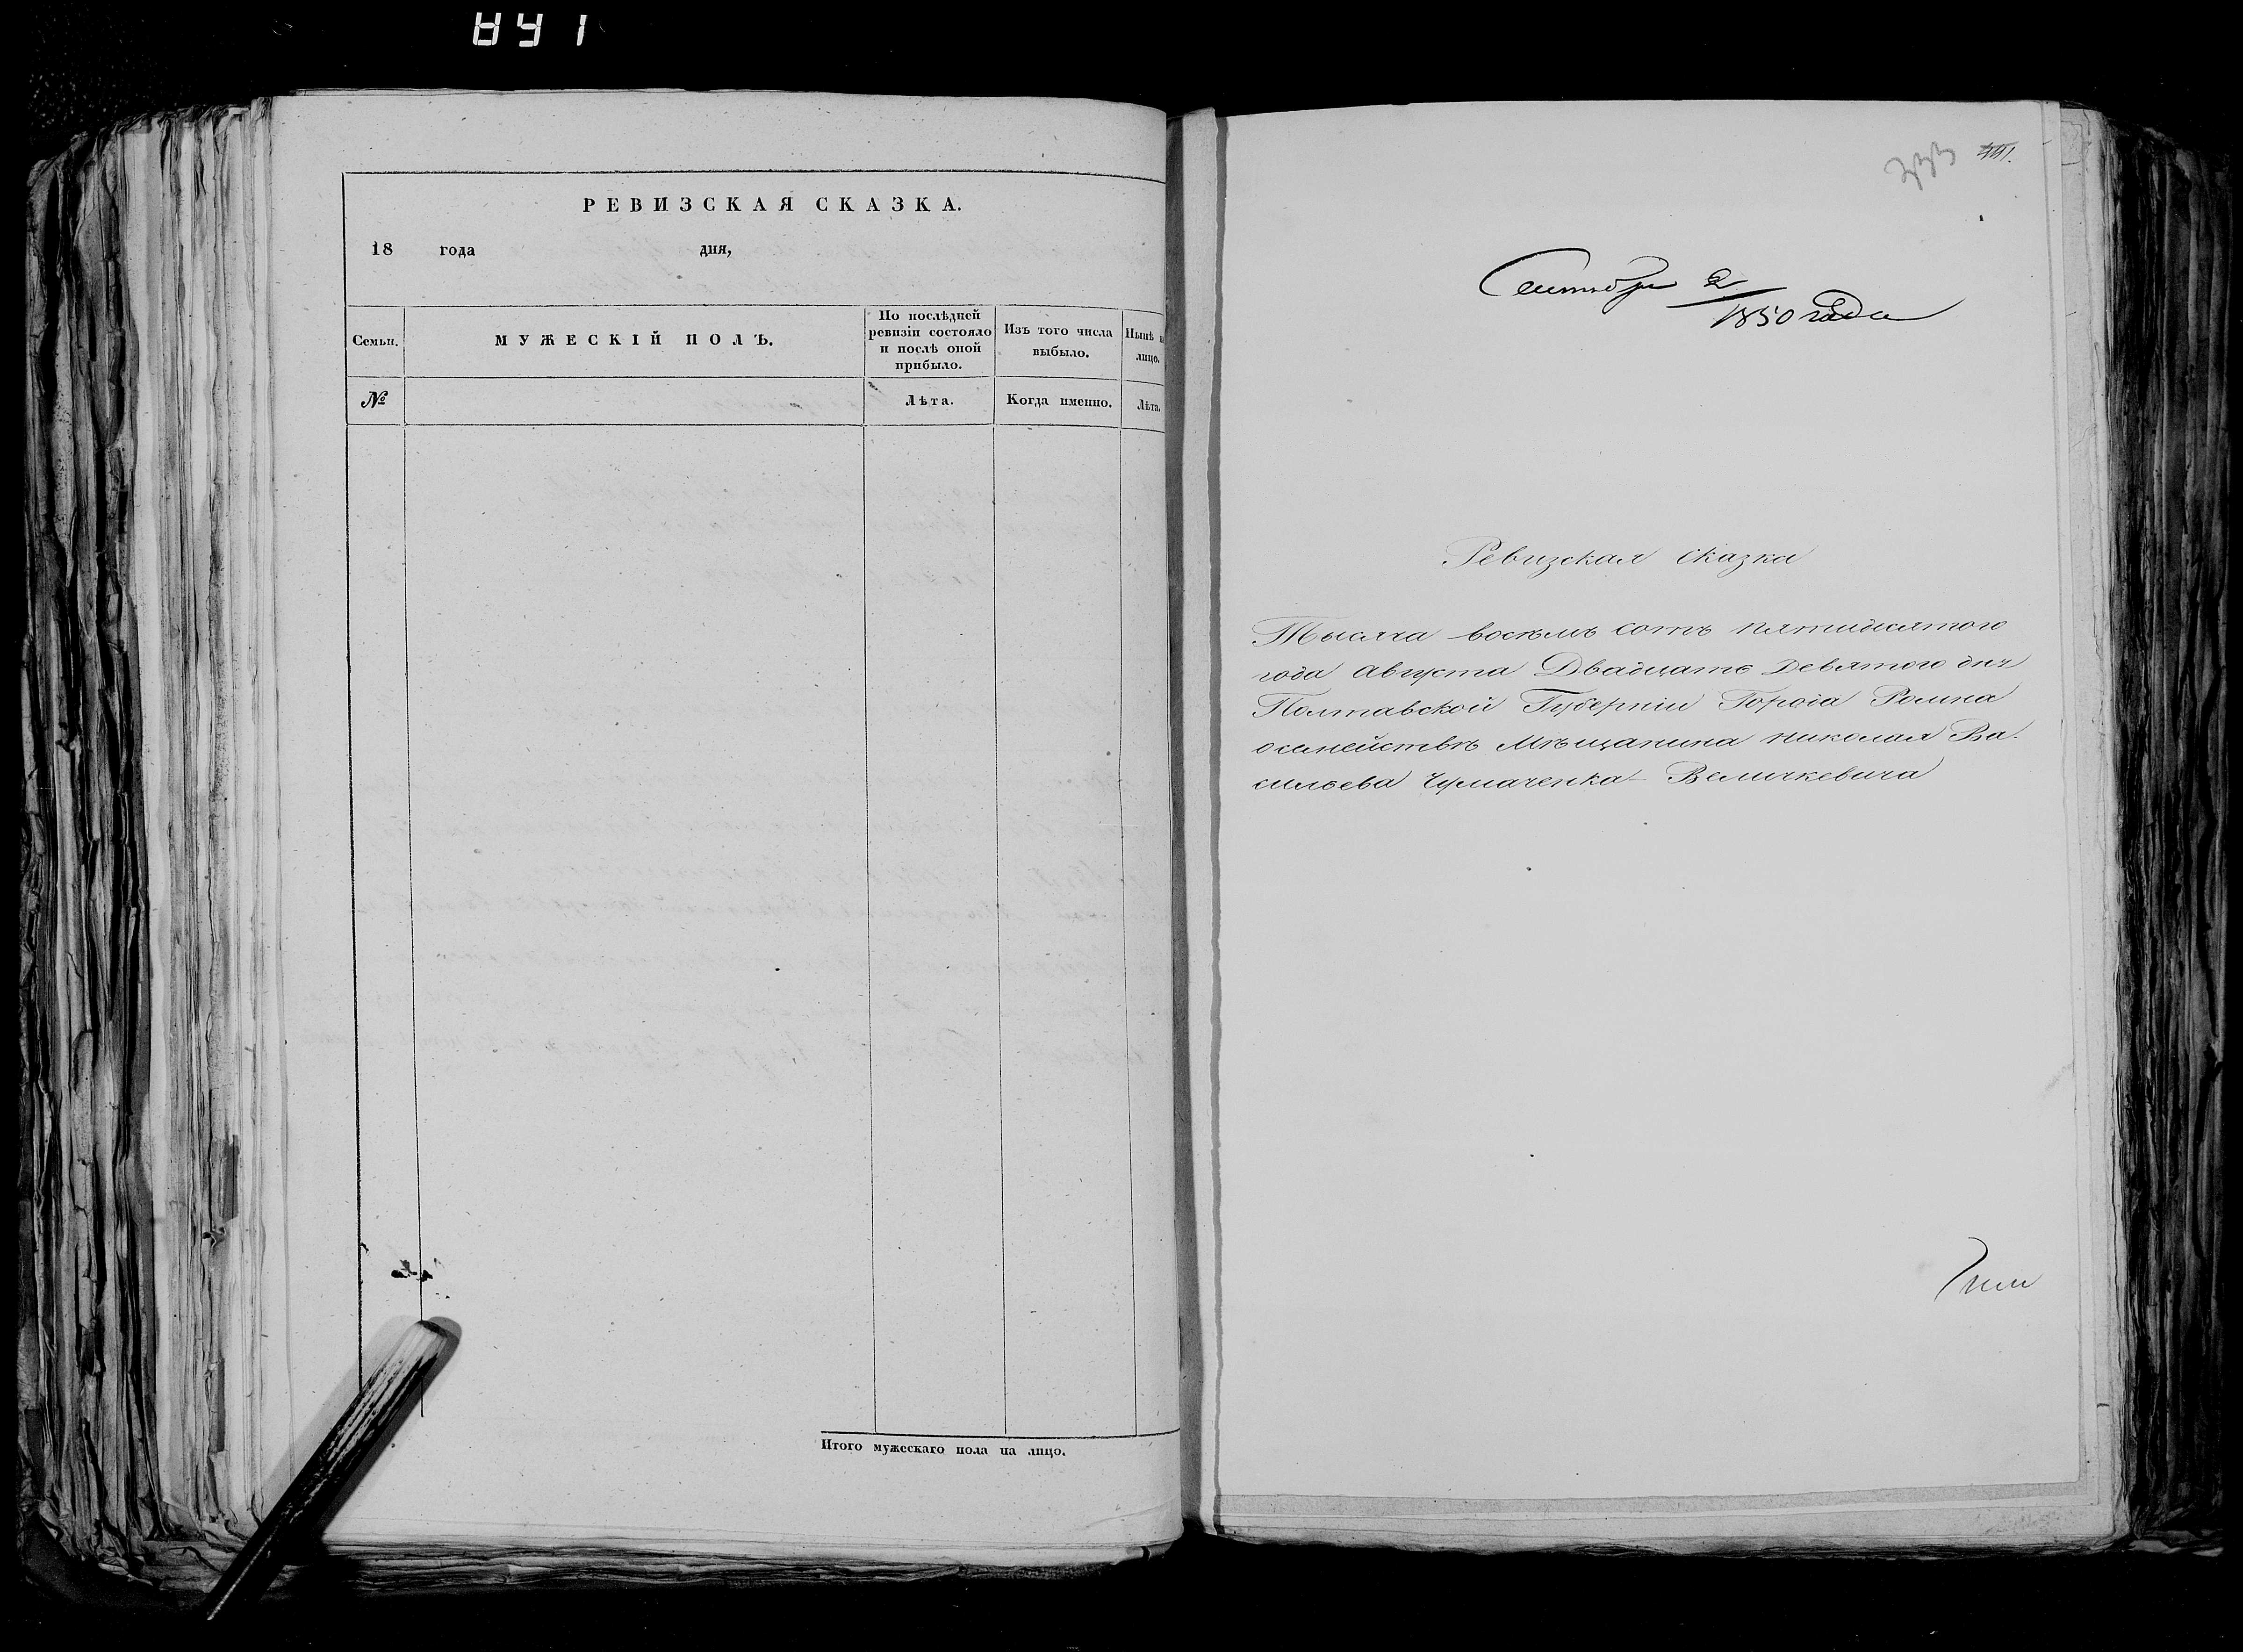 РЕВИЗСКАЯ СКАЗКА.
18 года дня,
Семьи.
МУЖЕСКІЙ ПОЛЪ.
По послѣдней ревизіи состояло и послѣ оной прибыло.
Изъ того числа выбыло.
Нынѣ на лицо.
№
Лѣта.
Когда именно.
Лѣта.
Итого мужескаго пола на лицо.
Сентября 2
1850 года
Ревизская сказка
Тысяча восемъ сотъ пятидисятого
года Августа Двадцать Девятого дня
Полтавской Губерніи Города Ромна
о семействѣ Мѣщанина николая Ва-
сильева Чумаченка - Величкевича